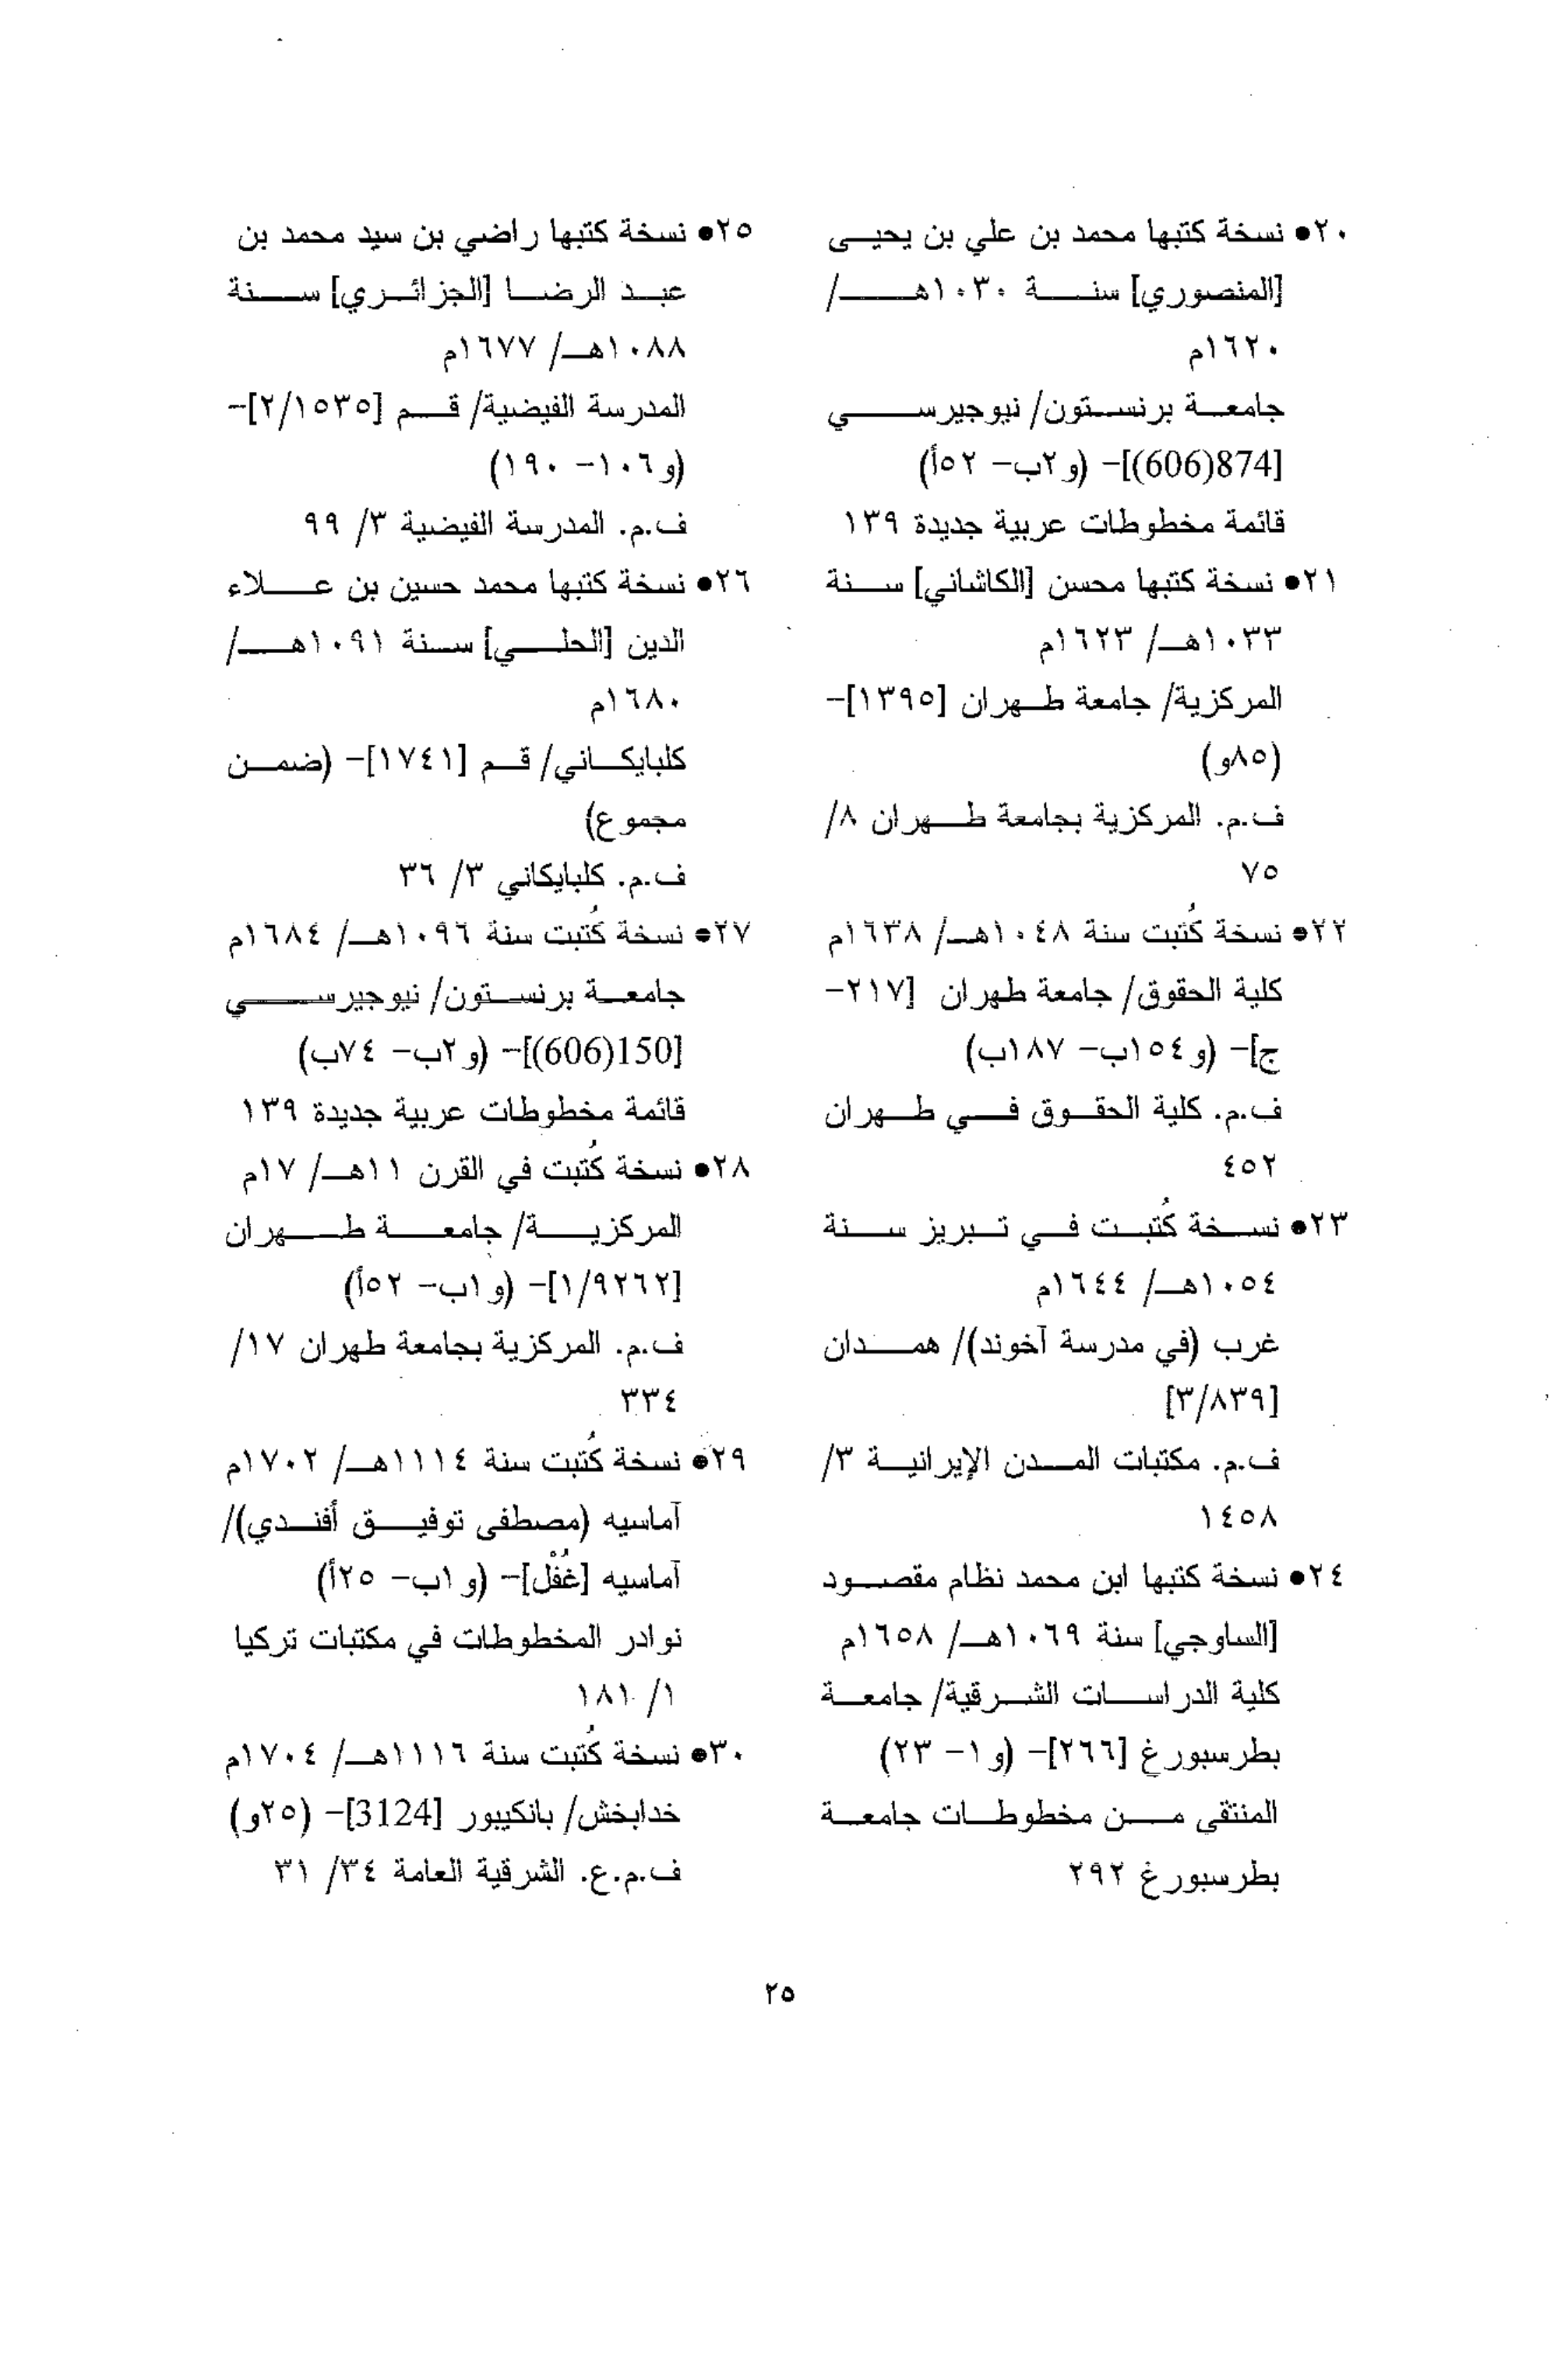 ٢٠• نسخة كتبها محمد بن علي بن يحيى
[المنصوري] سنة ١٠٣٠هـ/
١٦٢٠م
جامعة برنستون/ نيوجيرسي
[874(606)]- (و٢ب- ٥٢أ)
قائمة مخطوطات عربية جديدة ١٣٩
٢١• نسخة كتبها محسن [الكاشاني] سنة
١٠٣٣هـ/ ١٦٢٣م
المركزية/ جامعة طهران [١٣٩٥]-
(٨٥و)
ف.م. المركزية بجامعة طهران ٨/
٧٥
٢٢• نسخة كُتبت سنة ١٠٤٨هـ/ ١٦٣٨م
كلية الحقوق/ جامعة طهران [٢١٧-
ج]- (و١٥٤ب- ١٨٧ب)
ف.م. كلية الحقوق في طهران
٤٥٢
٢٣• نسخة كُتبت في تبريز سنة
١٠٥٤هـ/ ١٦٤٤م
غرب (في مدرسة آخوند)/ همدان
[٣/٨٣٩]
ف.م. مكتبات المدن الإيرانية ٣/
١٤٥٨
٢٤• نسخة كتبها ابن محمد نظام مقصود
[الساوجي] سنة ١٠٦٩هـ/ ١٦٥٨م
كلية الدراسات الشرقية/ جامعة
بطرسبورغ [٢٦٦]- (و١- ٢٣)
المنتقى من مخطوطات جامعة
بطرسبورغ ٢٩٢
٢٥• نسخة كتبها راضي بن سيد محمد بن
عبد الرضا [الجزائري] سنة
١٠٨٨هـ/ ١٦٧٧م
المدرسة الفيضية/ قم [٢/١٥٣٥]-
(و١٠٦- ١٩٠)
ف.م. المدرسة الفيضية ٣/ ٩٩
٢٦• نسخة كتبها محمد حسين بن علاء
الدين [الحلي] سنة ١٠٩١هـ/
١٦٨٠م
كلبايكاني/ قم [١٧٤١]- (ضمن
مجموع)
ف.م. كلبايكاني ٣/ ٣٦
٢٧• نسخة كُتبت سنة ١٠٩٦هـ/ ١٦٨٤م
جامعة برنستون/ نيوجيرسي
[150(606)]- (و٢ب- ٧٤ب)
قائمة مخطوطات عربية جديدة ١٣٩
٢٨• نسخة كُتبت في القرن ١١هـ/ ١٧م
المركزية/ جامعة طهران
[١/٩٢٦٢]- (و١ب- ٥٢أ)
ف.م. المركزية بجامعة طهران ١٧/
٣٣٤
٢٩• نسخة كُتبت سنة ١١١٤هـ/ ١٧٠٢م
آماسيه (مصطفى توفيق أفندي)/
آماسيه [غُفْل]- (و١ب- ٢٥أ)
نوادر المخطوطات في مكتبات تركيا
١/ ١٨١
٣٠• نسخة كُتبت سنة ١١١٦هـ/ ١٧٠٤م
خدابخش/ بانكيبور [3124]- (٢٥و)
ف.م.ع. الشرقية العامة ٣٤/ ٣١
٢٥